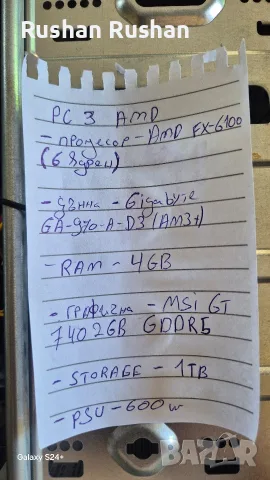 Rushan Rushan
PC 3 AMD
- процесор - AMD FX-6100
(6 ядрен)
- дънна - Gigabyte
GA-970-A-D3 (AM3+)
- RAM - 4GB
- графична - MSI GT
740 2GB GDDR5
- STORAGE - 1TB
- PSU - 600w
Galaxy S24+
БАZАР